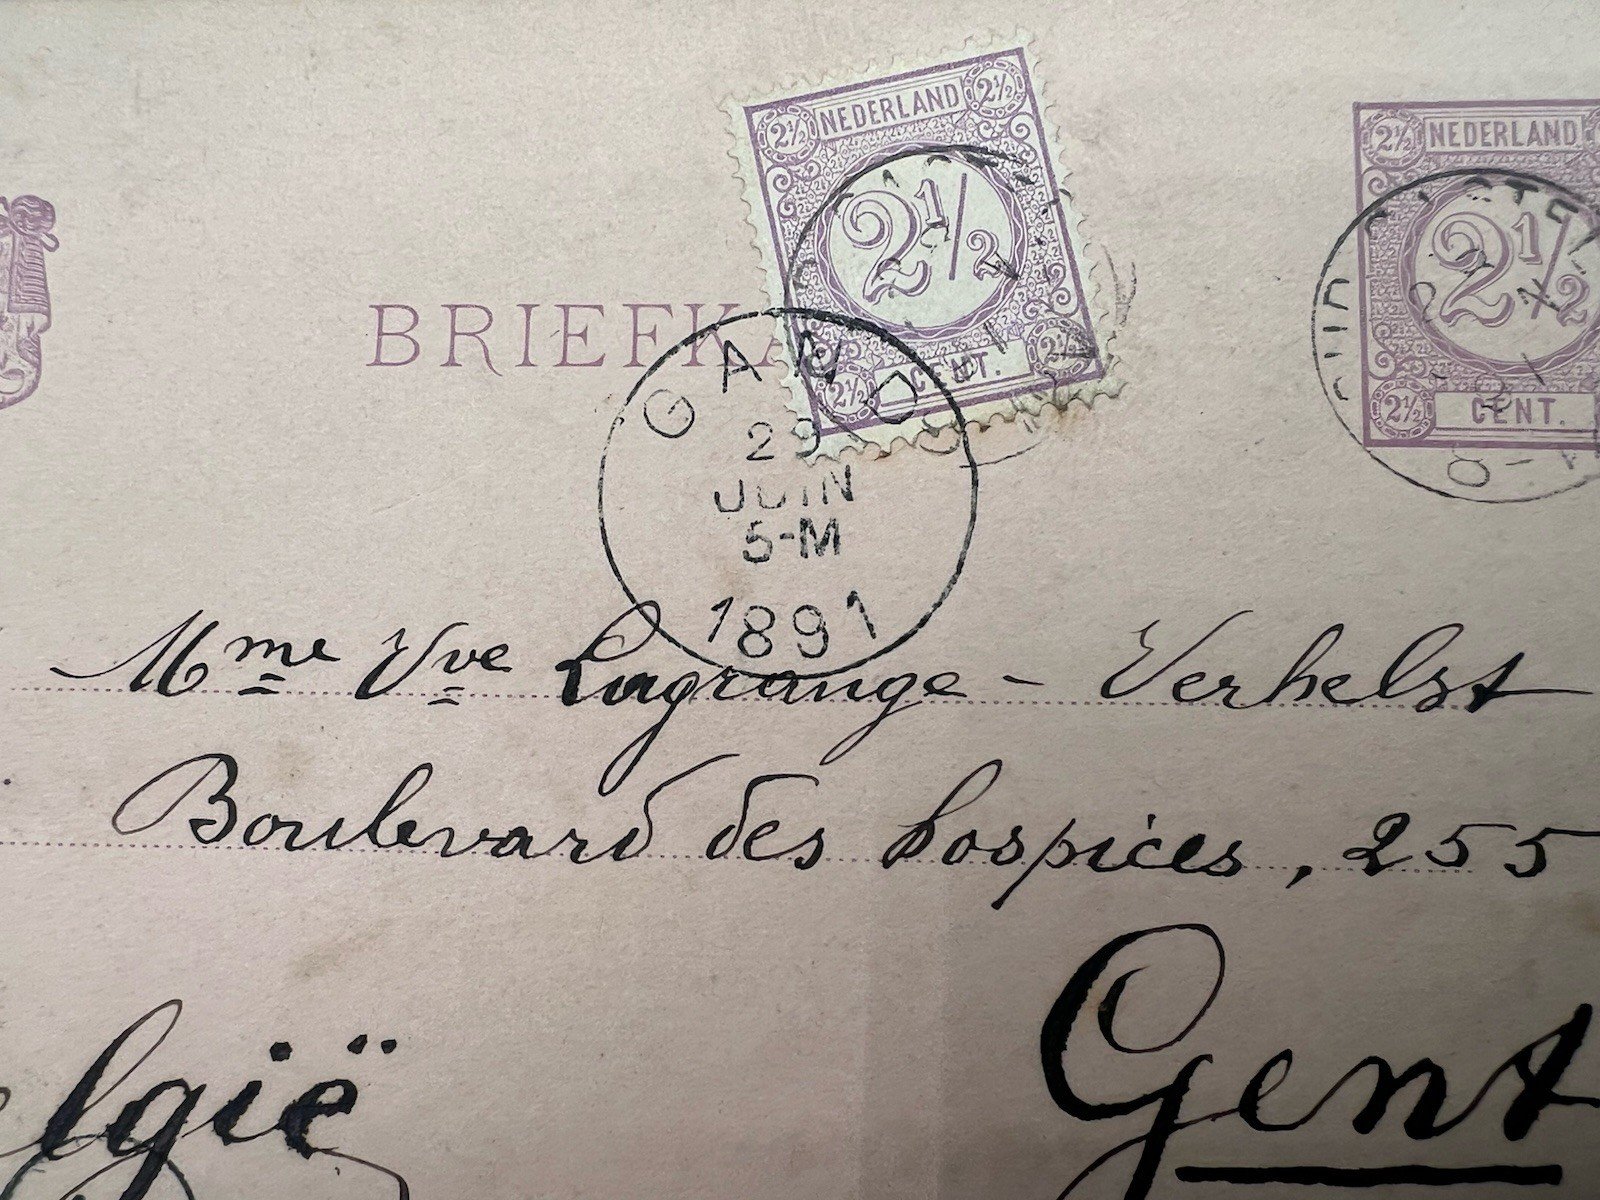 2½ NEDERLAND 2½
2½
2½ CENT. 2½
2½ NEDERLAND
2½
2½ CENT.
BRIEFKA
GAND
29
JUIN
5-M
1891
Mme Vve Lagrange - Verhelst
Boulevard des hospices, 255
elgië
Gent